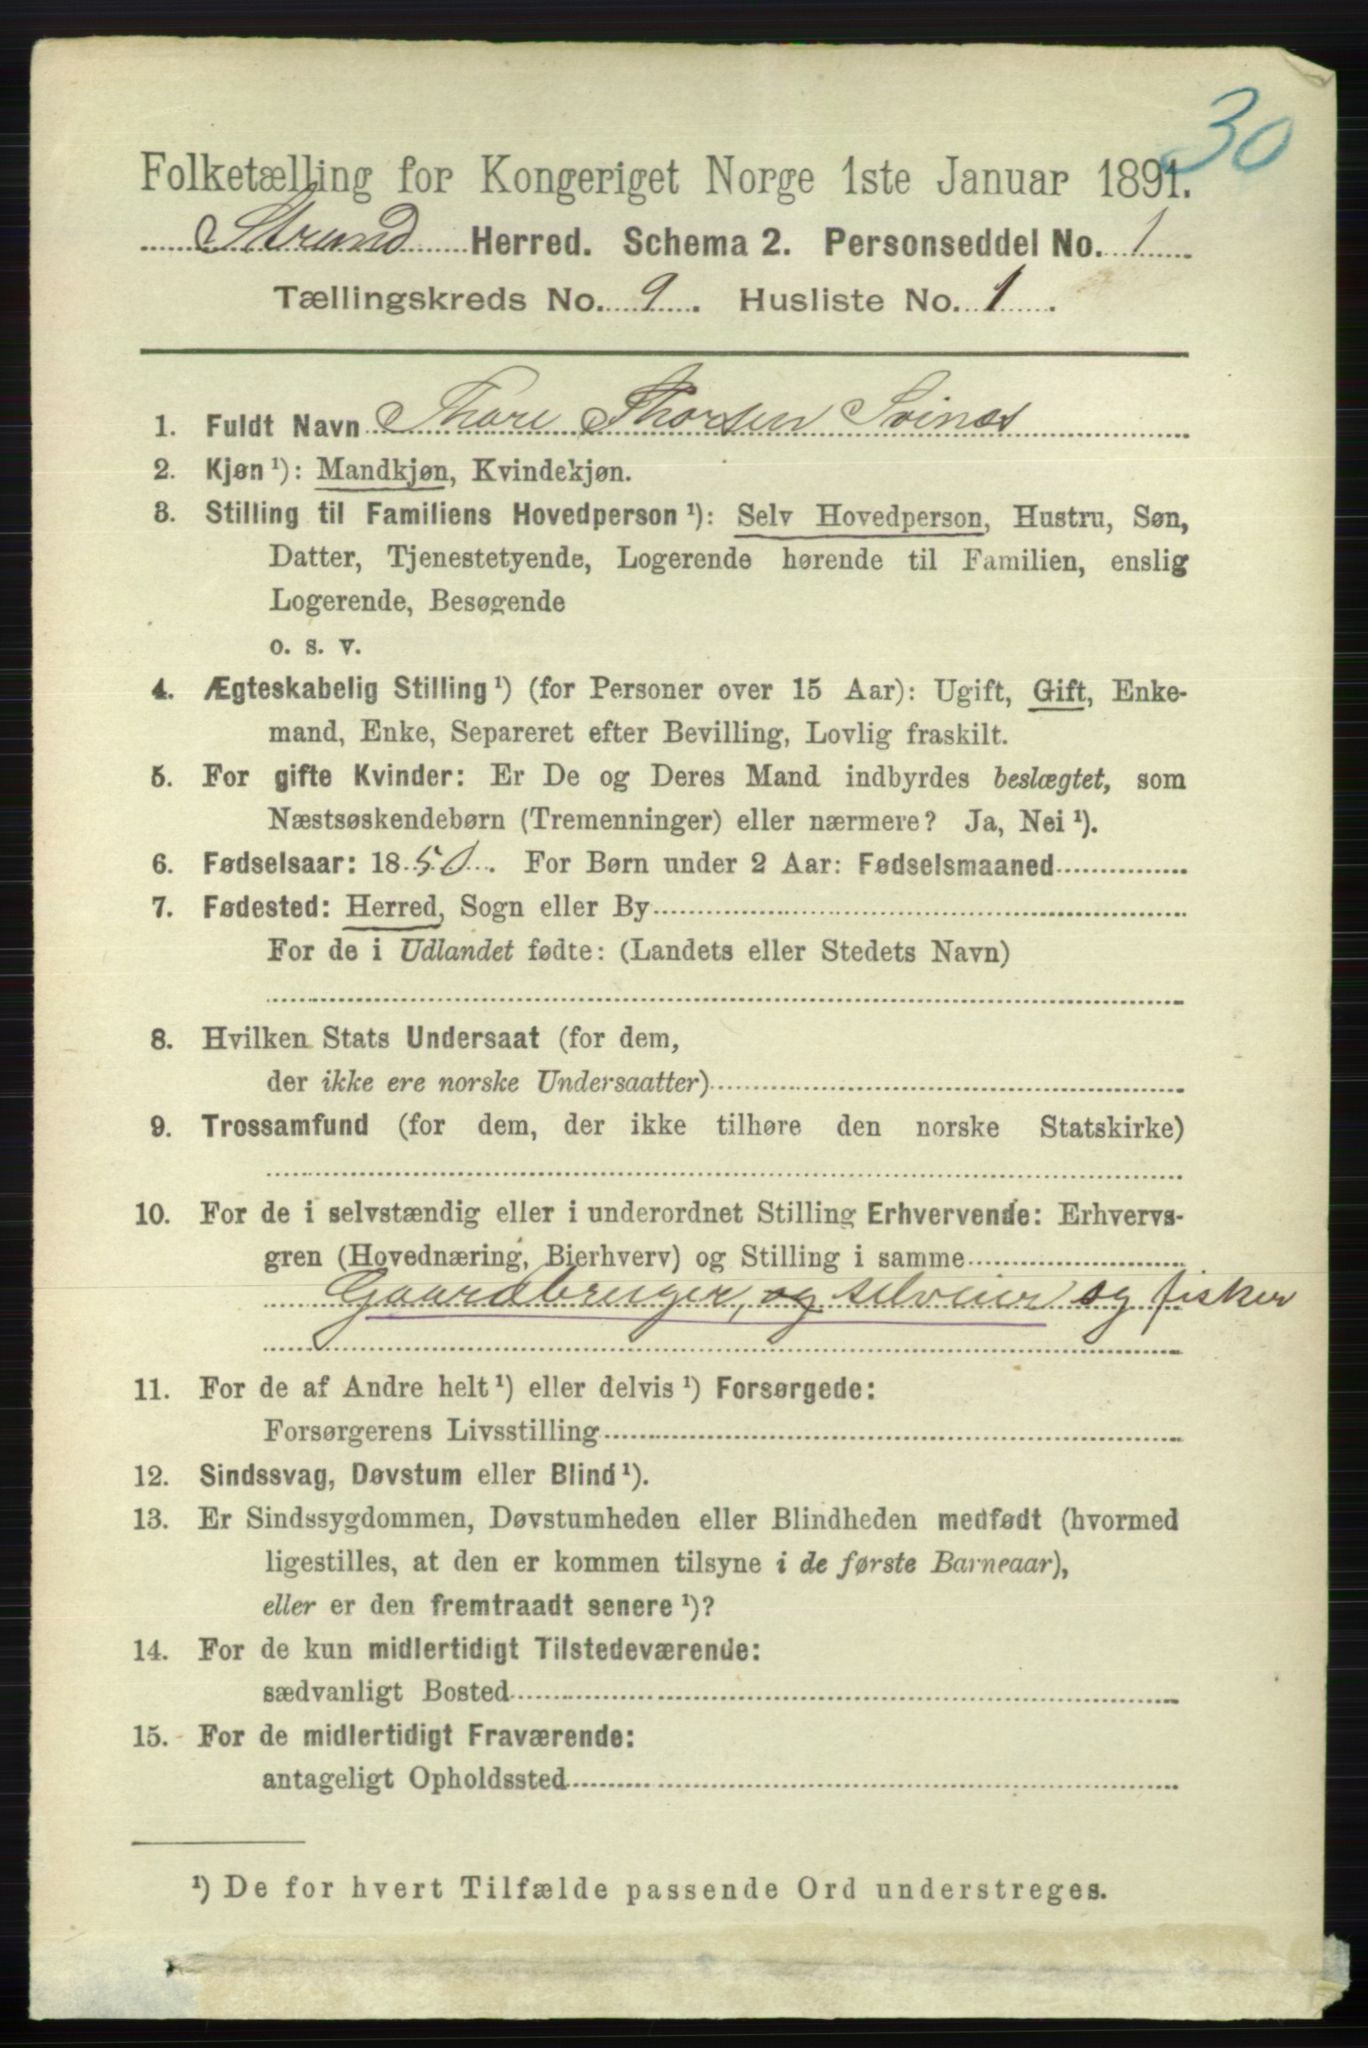 30
Folketælling for Kongeriget Norge 1ste Januar 1891.
Strand Herred. Schema 2. Personseddel No. 1
Tællingskreds No. 9. Husliste No. 1.
1. Fuldt Navn Thore Thorsen Svinæs
2. Kjøn ¹): Mandkjøn, Kvindekjøn.
3. Stilling til Familiens Hovedperson ¹): Selv Hovedperson, Hustru, Søn,
Datter, Tjenestetyende, Logerende hørende til Familien, enslig
Logerende, Besøgende
o. s. v.
4. Ægteskabelig Stilling ¹) (for Personer over 15 Aar): Ugift, Gift, Enke-
mand, Enke, Separeret efter Bevilling, Lovlig fraskilt.
5. For gifte Kvinder: Er De og Deres Mand indbyrdes beslægtet, som
Næstsøskendebørn (Tremenninger) eller nærmere? Ja, Nei ¹).
6. Fødselsaar: 1850. For Børn under 2 Aar: Fødselsmaaned
7. Fødested: Herred, Sogn eller By
For de i Udlandet fødte: (Landets eller Stedets Navn)
8. Hvilken Stats Undersaat (for dem,
der ikke ere norske Undersaatter)
9. Trossamfund (for dem, der ikke tilhøre den norske Statskirke)
10. For de i selvstændig eller i underordnet Stilling Erhvervende: Erhvervs-
gren (Hovednæring, Bierhverv) og Stilling i samme
Gaardbruger, og selveier og fisker
11. For de af Andre helt ¹) eller delvis ¹) Forsørgede:
Forsørgerens Livsstilling
12. Sindssvag, Døvstum eller Blind ¹).
13. Er Sindssygdommen, Døvstumheden eller Blindheden medfødt (hvormed
ligestilles, at den er kommen tilsyne i de første Barneaar),
eller er den fremtraadt senere ¹)?
14. For de kun midlertidigt Tilstedeværende:
sædvanligt Bosted
15. For de midlertidigt Fraværende:
antageligt Opholdssted
¹) De for hvert Tilfælde passende Ord understreges.